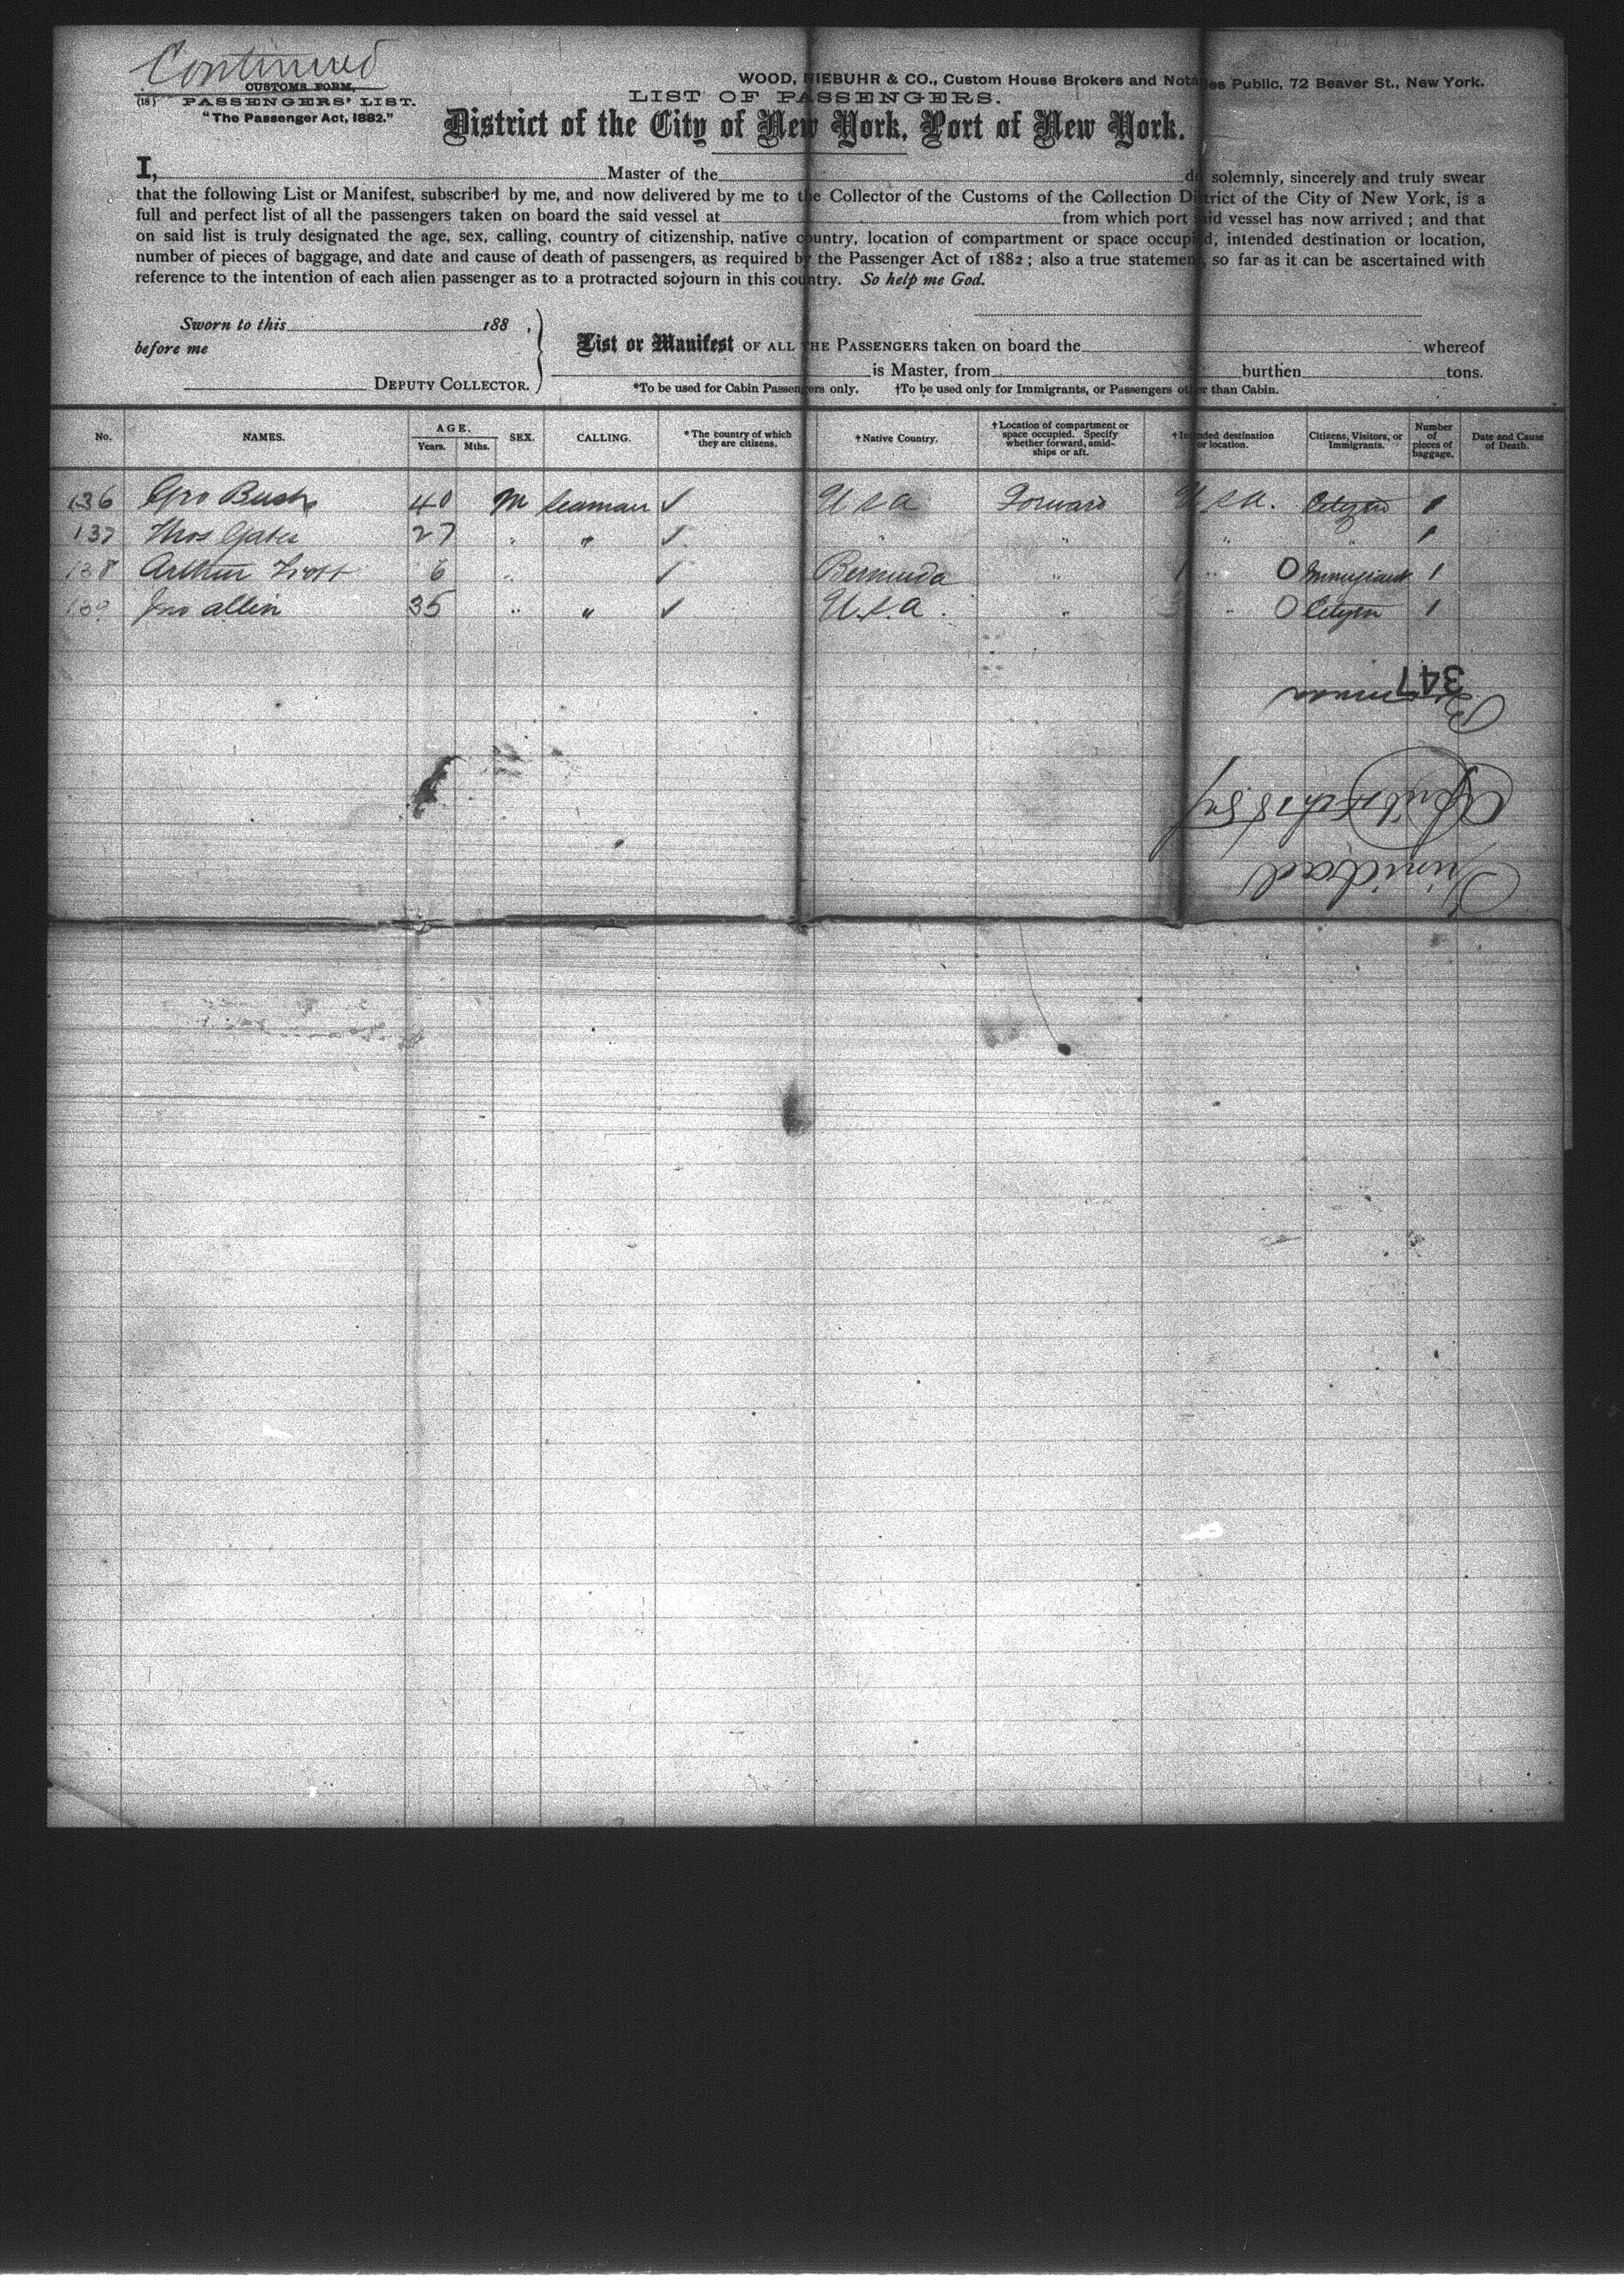 Continued
CUSTOMS FORM,
(18) PASSENGERS' LIST.
"The Passenger Act, 1882."
WOOD, NIEBUHR & CO., Custom House Brokers and Notaries Public, 72 Beaver St., New York.
LIST OF PASSENGERS.
District of the City of New York, Port of New York.
I, Master of the do solemnly, sincerely and truly swear
that the following List or Manifest, subscribed by me, and now delivered by me to the Collector of the Customs of the Collection District of the City of New York, is a
full and perfect list of all the passengers taken on board the said vessel at from which port said vessel has now arrived ; and that
on said list is truly designated the age, sex, calling, country of citizenship, native country, location of compartment or space occupied, intended destination or location,
number of pieces of baggage, and date and cause of death of passengers, as required by the Passenger Act of 1882 ; also a true statement, so far as it can be ascertained with
reference to the intention of each alien passenger as to a protracted sojourn in this country. So help me God.
Sworn to this 188 ,
before me
DEPUTY COLLECTOR.
List or Manifest OF ALL THE PASSENGERS taken on board the whereof
is Master, from burthen tons.
*To be used for Cabin Passengers only. †To be used only for Immigrants, or Passengers other than Cabin.
No. NAMES. AGE. Years. Mths. SEX. CALLING. *The country of which they are citizens. †Native Country. †Location of compartment or space occupied. Specify whether forward, amidships or aft. †Intended destination or location. Citizens, Visitors, or Immigrants. Number of pieces of baggage. Date and Cause of Death.
136 Geo Bush 40 M Seaman ✓ U S A Forward U S A. Citizen 1
137 Thos Gates 27 " " ✓ " " " " 1
138 Arthur Trott 6 " ✓ Bermuda " " 0 Immigrant 1
139 Jno Allin 35 " " ✓ U.S.A. " " 0 Citizen 1
347
Trinidad